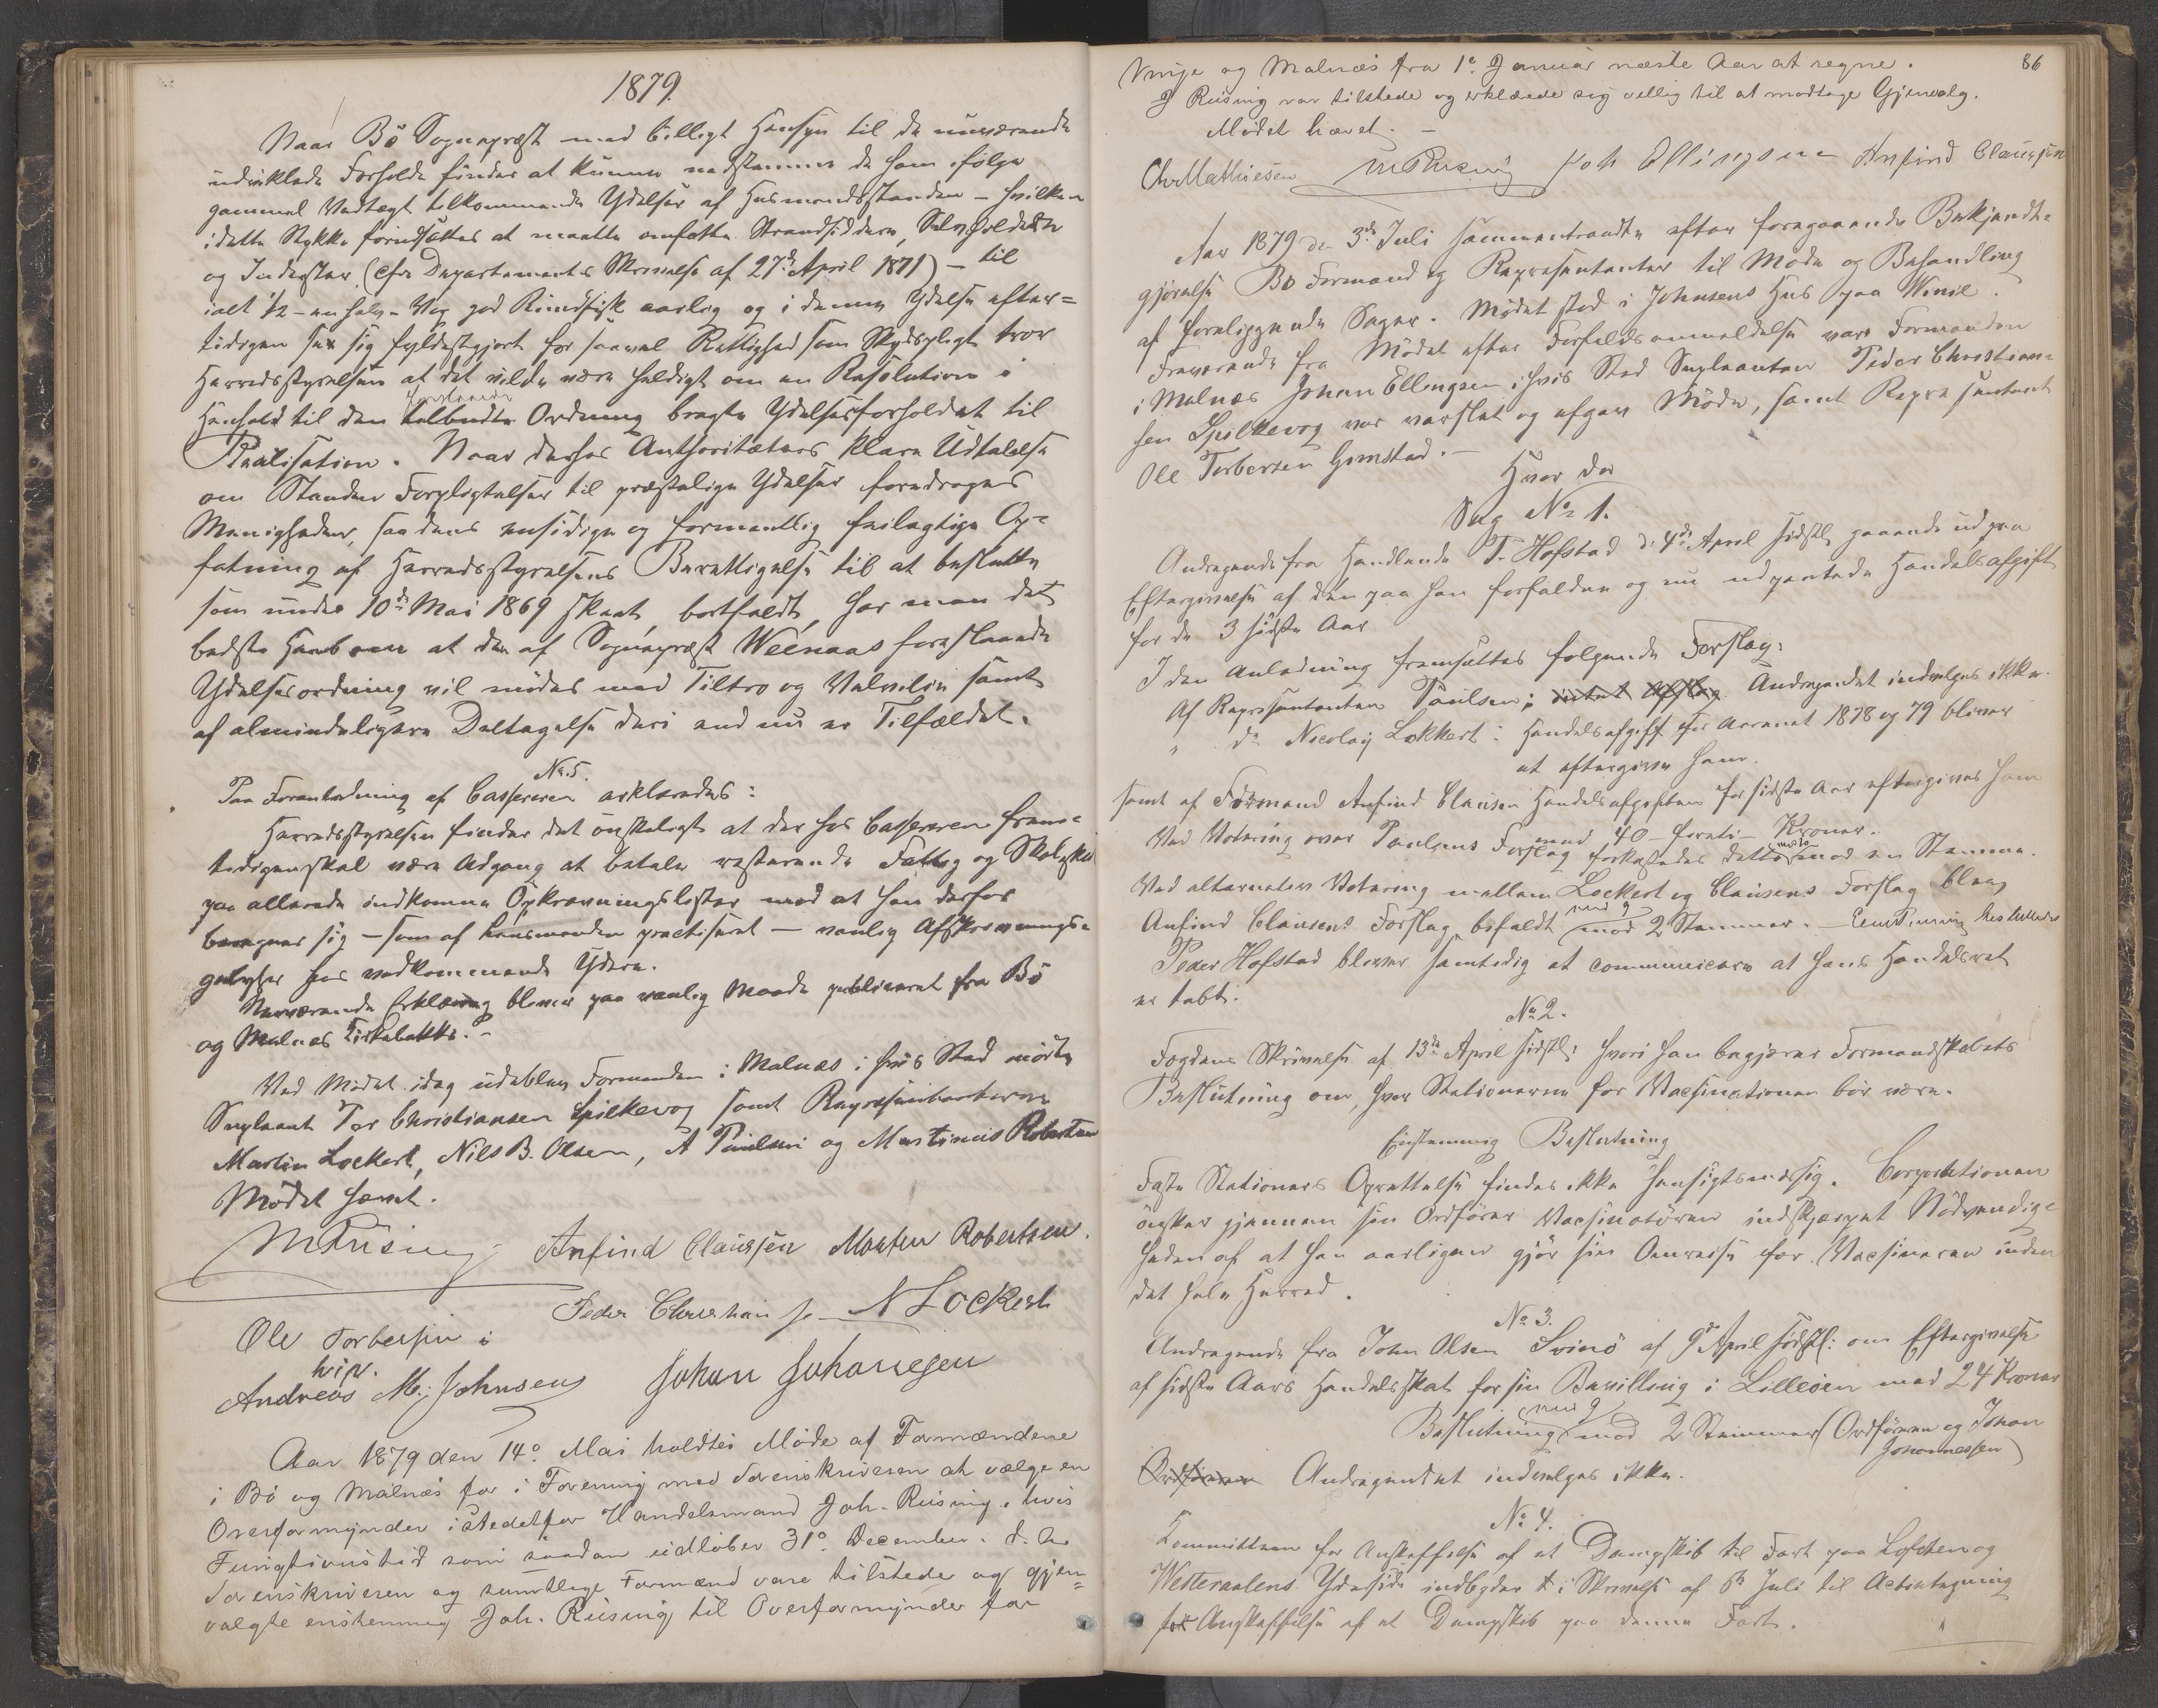 1879.
Naar Bö Sognepræst med billigt Hensyn til de nuværende
udviklede Forholde finder at kunne nedstemme de ham ifølge
gammel Vedtægt tilkommende Ydelser af Husmandsstanden – hvilken
i dette Stykke forudsættes at maatte omfatte Strandsiddere, Selvfolder
og Inderster (cfr Departements Skrivelse af 27de April 1871) – til
ialt ½ – en halv – Vog god Rundfisk aarlig og i denne Ydelse efter=
tidigen see sig fyldestgjort for saavel Rettighed som Skydspligt tror
Herredsstyrelsen at det vilde være heldigt om en Resolution i
Henhold til den foreslaaede tilbudte Ordning bragte Ydelsesforholdet til
Realisation. Naar derhos Authoritæters klare Udtalelse
om Standens Forpligtelser til præstelige Ydelser foredrages
Menigheden, samt dens ensidige og formentlig feilagtige Op=
fatning af Herredsstyrelsens Berettigelse til at beslutte
som under 10de Mai 1869 skeet, bortfaldt, har man det
bedste Haab om at den af Sognepræst Weenaas foreslaaede
Ydelsesordning vil mødes med Tiltro og Velvilie samt
af almindeligere Deltagelse deri end nu er Tilfældet.
No. 5.
Paa Foranledning af Cassereren erklæredes:
Herredsstyrelsen finder det ønskeligt at der hos Cassereren frem=
tidigen skal være Adgang at betale resterende Fattig og Skoleskat
paa allerede indkomne Opkrævningslister mod at han derfor
beregner sig – som af Lensmanden practiseret – vanlig Afkrævnings=
gebyhr hos vedkommende Ydere.
Nærværende Erklæring bliver paa vanlig Maade publiceret fra Bö
og Malnes Kirkebakke. –
Ved Mødet idag udeblev Formanden i Malnæs i hvis Sted mødte
Supleant Per Christiansen Spilkevog samt Repræsentanterne
Martin Lockert, Nils B. Olsen, A Paulsen og Martinus Robertsen
Mødet hævet.
M Rüsing Anfind Claussen Morten Robertsen.
Peder Christiansen N Lockert
Ole Torbersen
Andreas M. Johnsen Johan Johanesen
Aar 1879 den 14de Mai holdtes Møde af Formændene
i Bö og Malnæs for i Forening med Sorenskriveren at vælge en
Overformynder istedetfor Handelsmand Joh. Rüsing, hvis
Fungtionstid som saadan udløber 31te December d. A.
Sorenskriveren og samtlige Formænd vare tilstede og gjen=
valgte enstemmig Joh. Rüsing til Overformynder for
86
Vinje og Malnæs fra 1ste Januar næste Aar at regne.
J Rüsing var tilstede og erklærede sig villig til at modtage Gjenvalg.
Mødet hævet. –
Chr Mathiesen M Rüsing Joh Ellingsen Anfind Claussen
Aar 1879 den 3de Juli sammentraadte efter foregaaende Bekjendt=
gjørelse Bö Formænd og Repræsentanter til Møde og Behandling
af foreliggende Sager. Mødet stod i Johnsens Hus paa Winie.
Fraværende fra Mødet efter Forfaldsanmeldelse vare Formanden
i Malnæs Johan Ellingsen i hvis Sted Supleanten Peder Christian=
sen Spilkevog var varslet og afgav Møde, samt Repræsentant
Ole Torbersen Gimstad. –
Hvor da
Sag No 1.
Andragende fra Handlende P. Hofstad d. 4de April sidstl. gaaende ud paa
Eftergivelse af den paa ham forfaldne og nu udpantede Handelsafgift
for de 3 sidste Aar
I den Anledning fremsættes følgende Forslag:
Af Repræsentanten Paulsen: Andragendet indvilges ikke.
" do Nicolay Lockert: Handelsafgift for Aarene 1878 og 79 bliver
at eftergive ham.
samt af Formand Anfind Clausen Handelsafgiften for sidste Aar eftergives ham
med 40 – foreti – Kroner.
Ved Votering over Paulsens Forslag forkastedes dette mod en Stemme.
Ved alternativ Votering mellem Lockert og Clausens Forslag blev
Anfind Clausens Forslag bifaldt med 9 mod 2 Stemmer. – Eenstemmig besluttedes
Peder Hofstad bliver samtidig at communicere at hans Handelsret
er tabt.
No 2.
Fogdens Skrivelse af 13de April sidstl: hvori han begjærer Formandskabets
Beslutning om, hvor Stationerne for Vaccinationen bør være.
Enstemmig Beslutning
Faste Stationers Oprettelse findes ikke hensigtsmæssig. Corporationen
ønsker gjennem sin Ordfører Vaccinatøren indskjærpet Nødvendig=
heden af at han aarligen gjør sin Omreise for Vaccineren inden
det hele Herred.
No 3.
Andragende fra John Olsen Svinö af 9de April sidstl: om Eftergivelse
af sidste Aars Handelsskat for sin Bevilling i Lilleöen med 24 Kroner
Beslutning med 9 mod 2 Stemmer (Ordføreren og Johan
Johannessen)
Ordføreren Andragendet indvilges ikke.
No 4.
Committeen for Anskaffelse af et Dampskib til Fart paa Lofoten og
Westeraalens Yderside indbyder i Skrivelse af 6te Juli til Actietegning
for Anskaffelse af et Dampskib paa denne Fart.